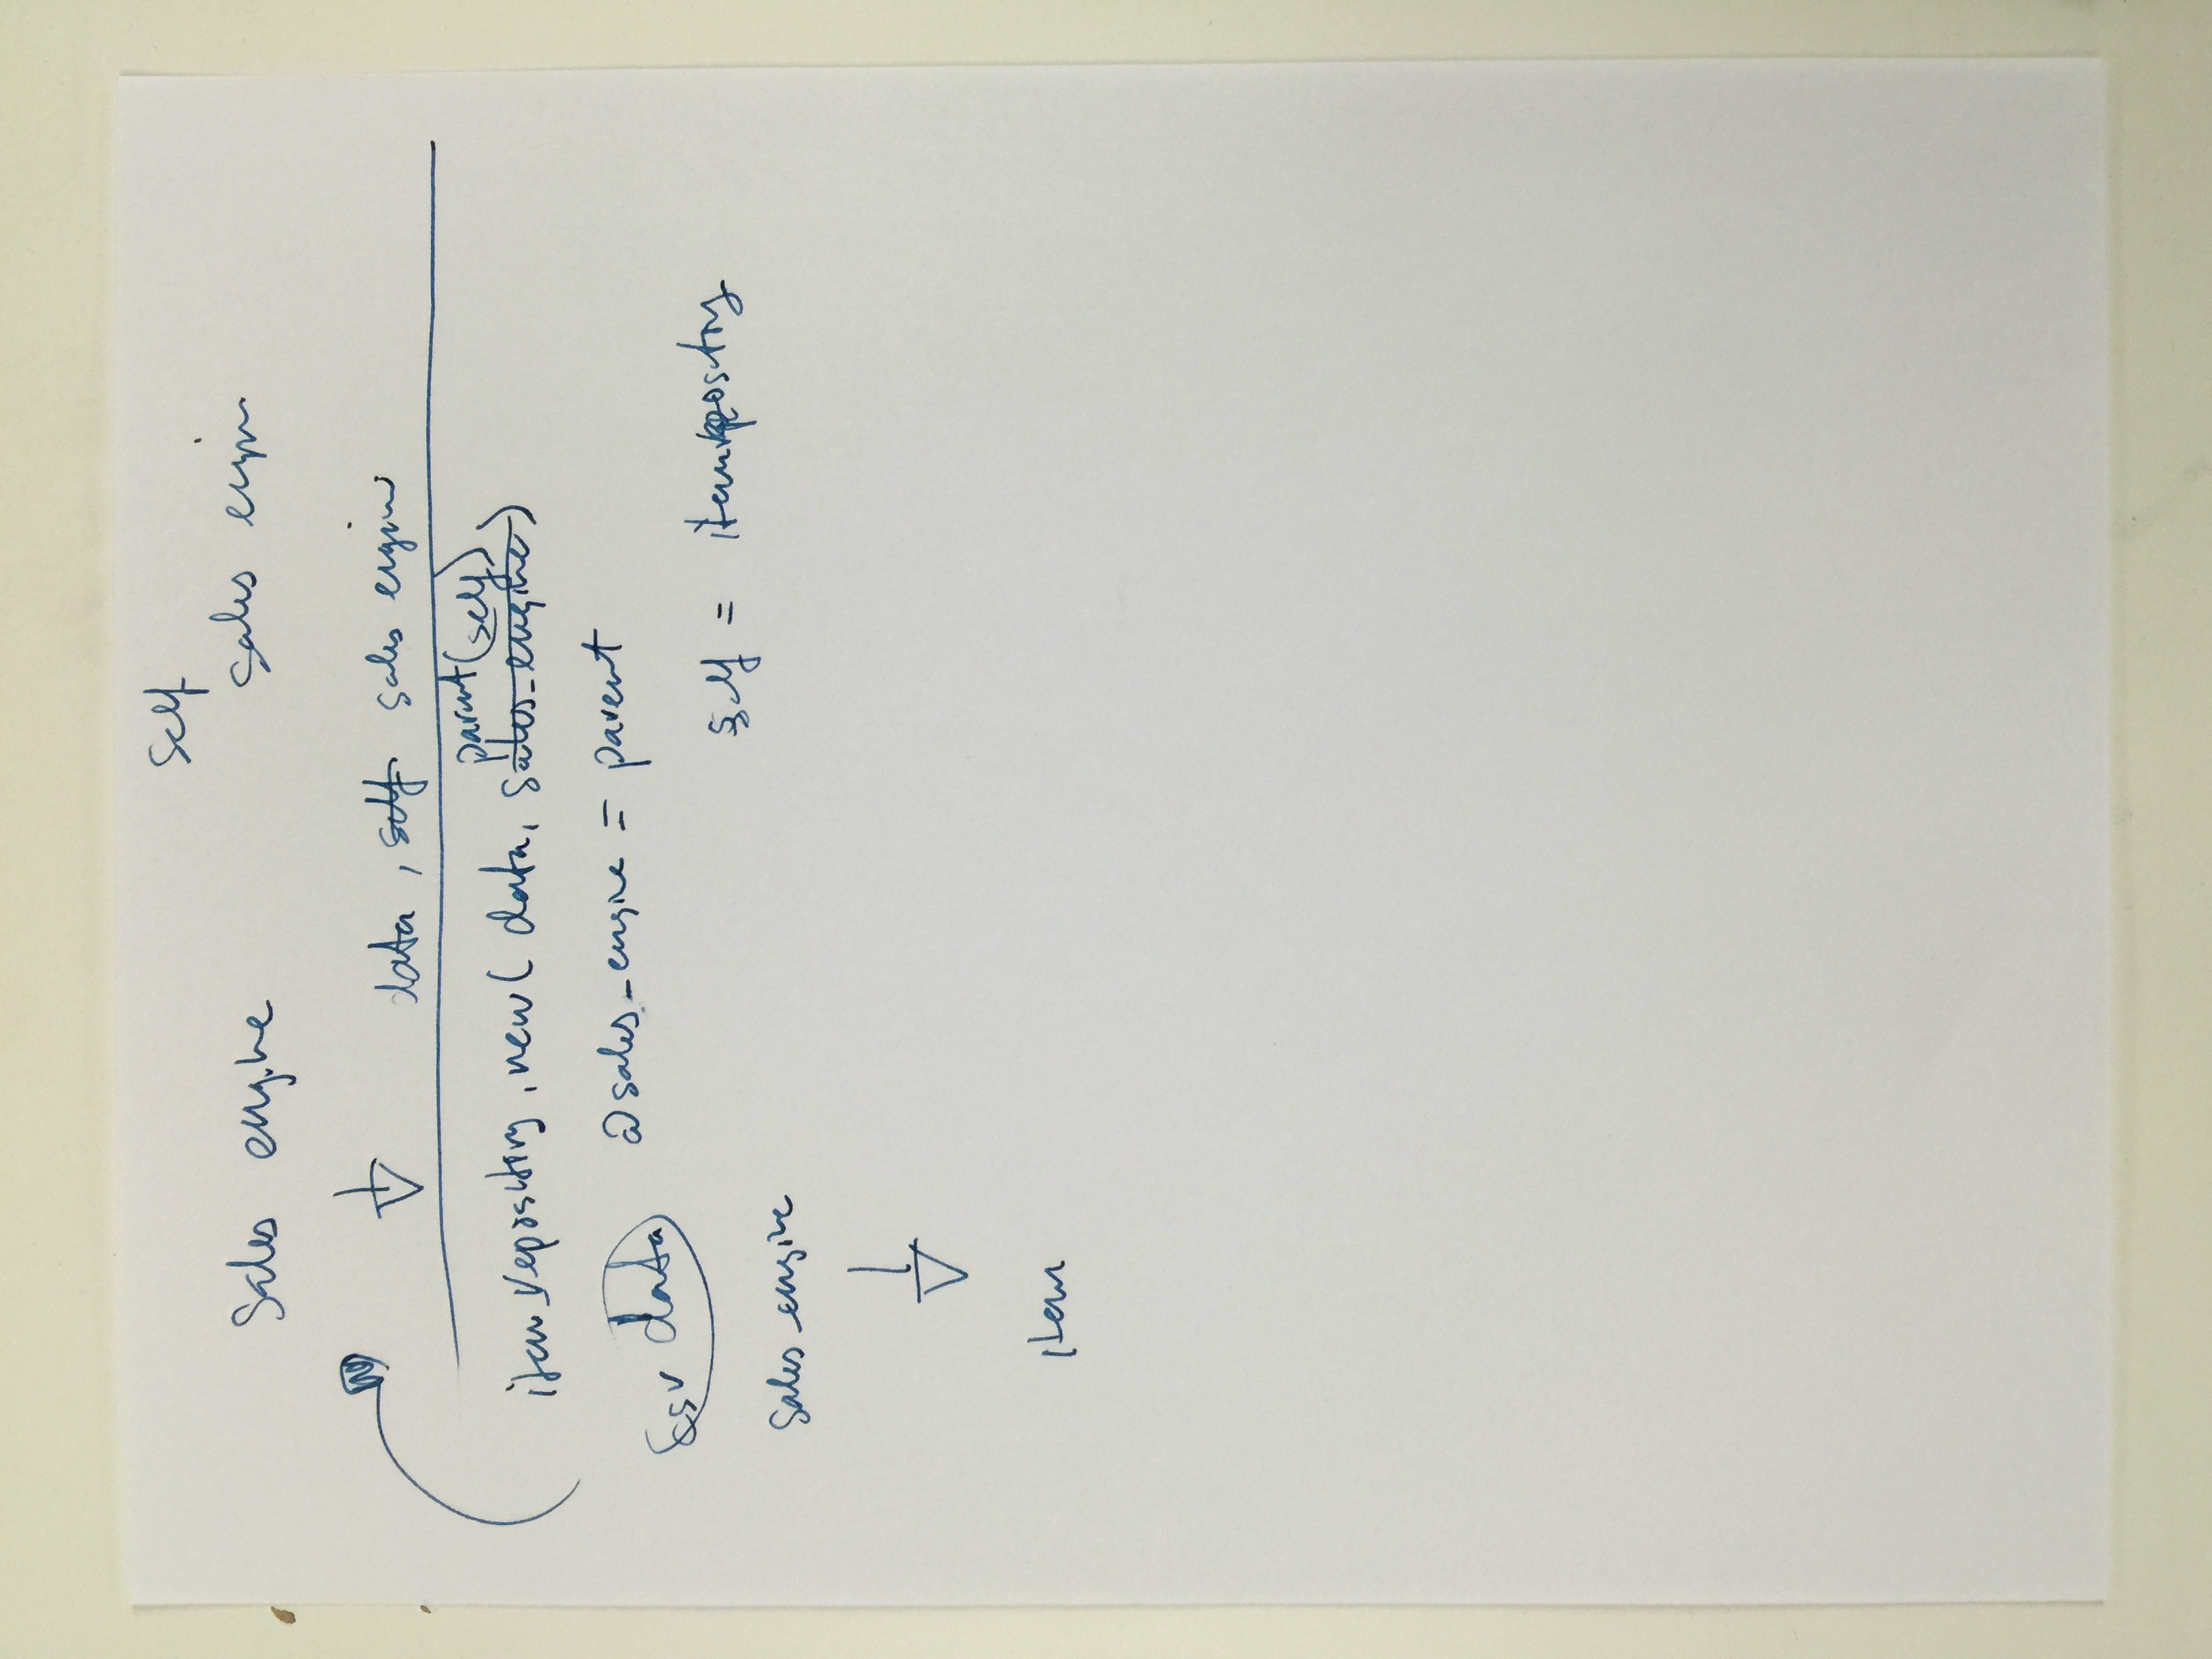 Self
Sales engine sales engine
data, self sales engine
parent(self)
item_repository.new( data, sales_engine)
@sales_engine = parent
csv data
self = itemrepository
Sales_engine
item